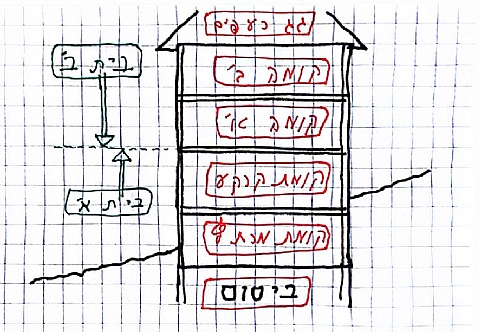 גג רעפים
קומה ב'
בית ב'
קומה א'
קומת קרקע
בית א'
קומת מרתף
ביסוס